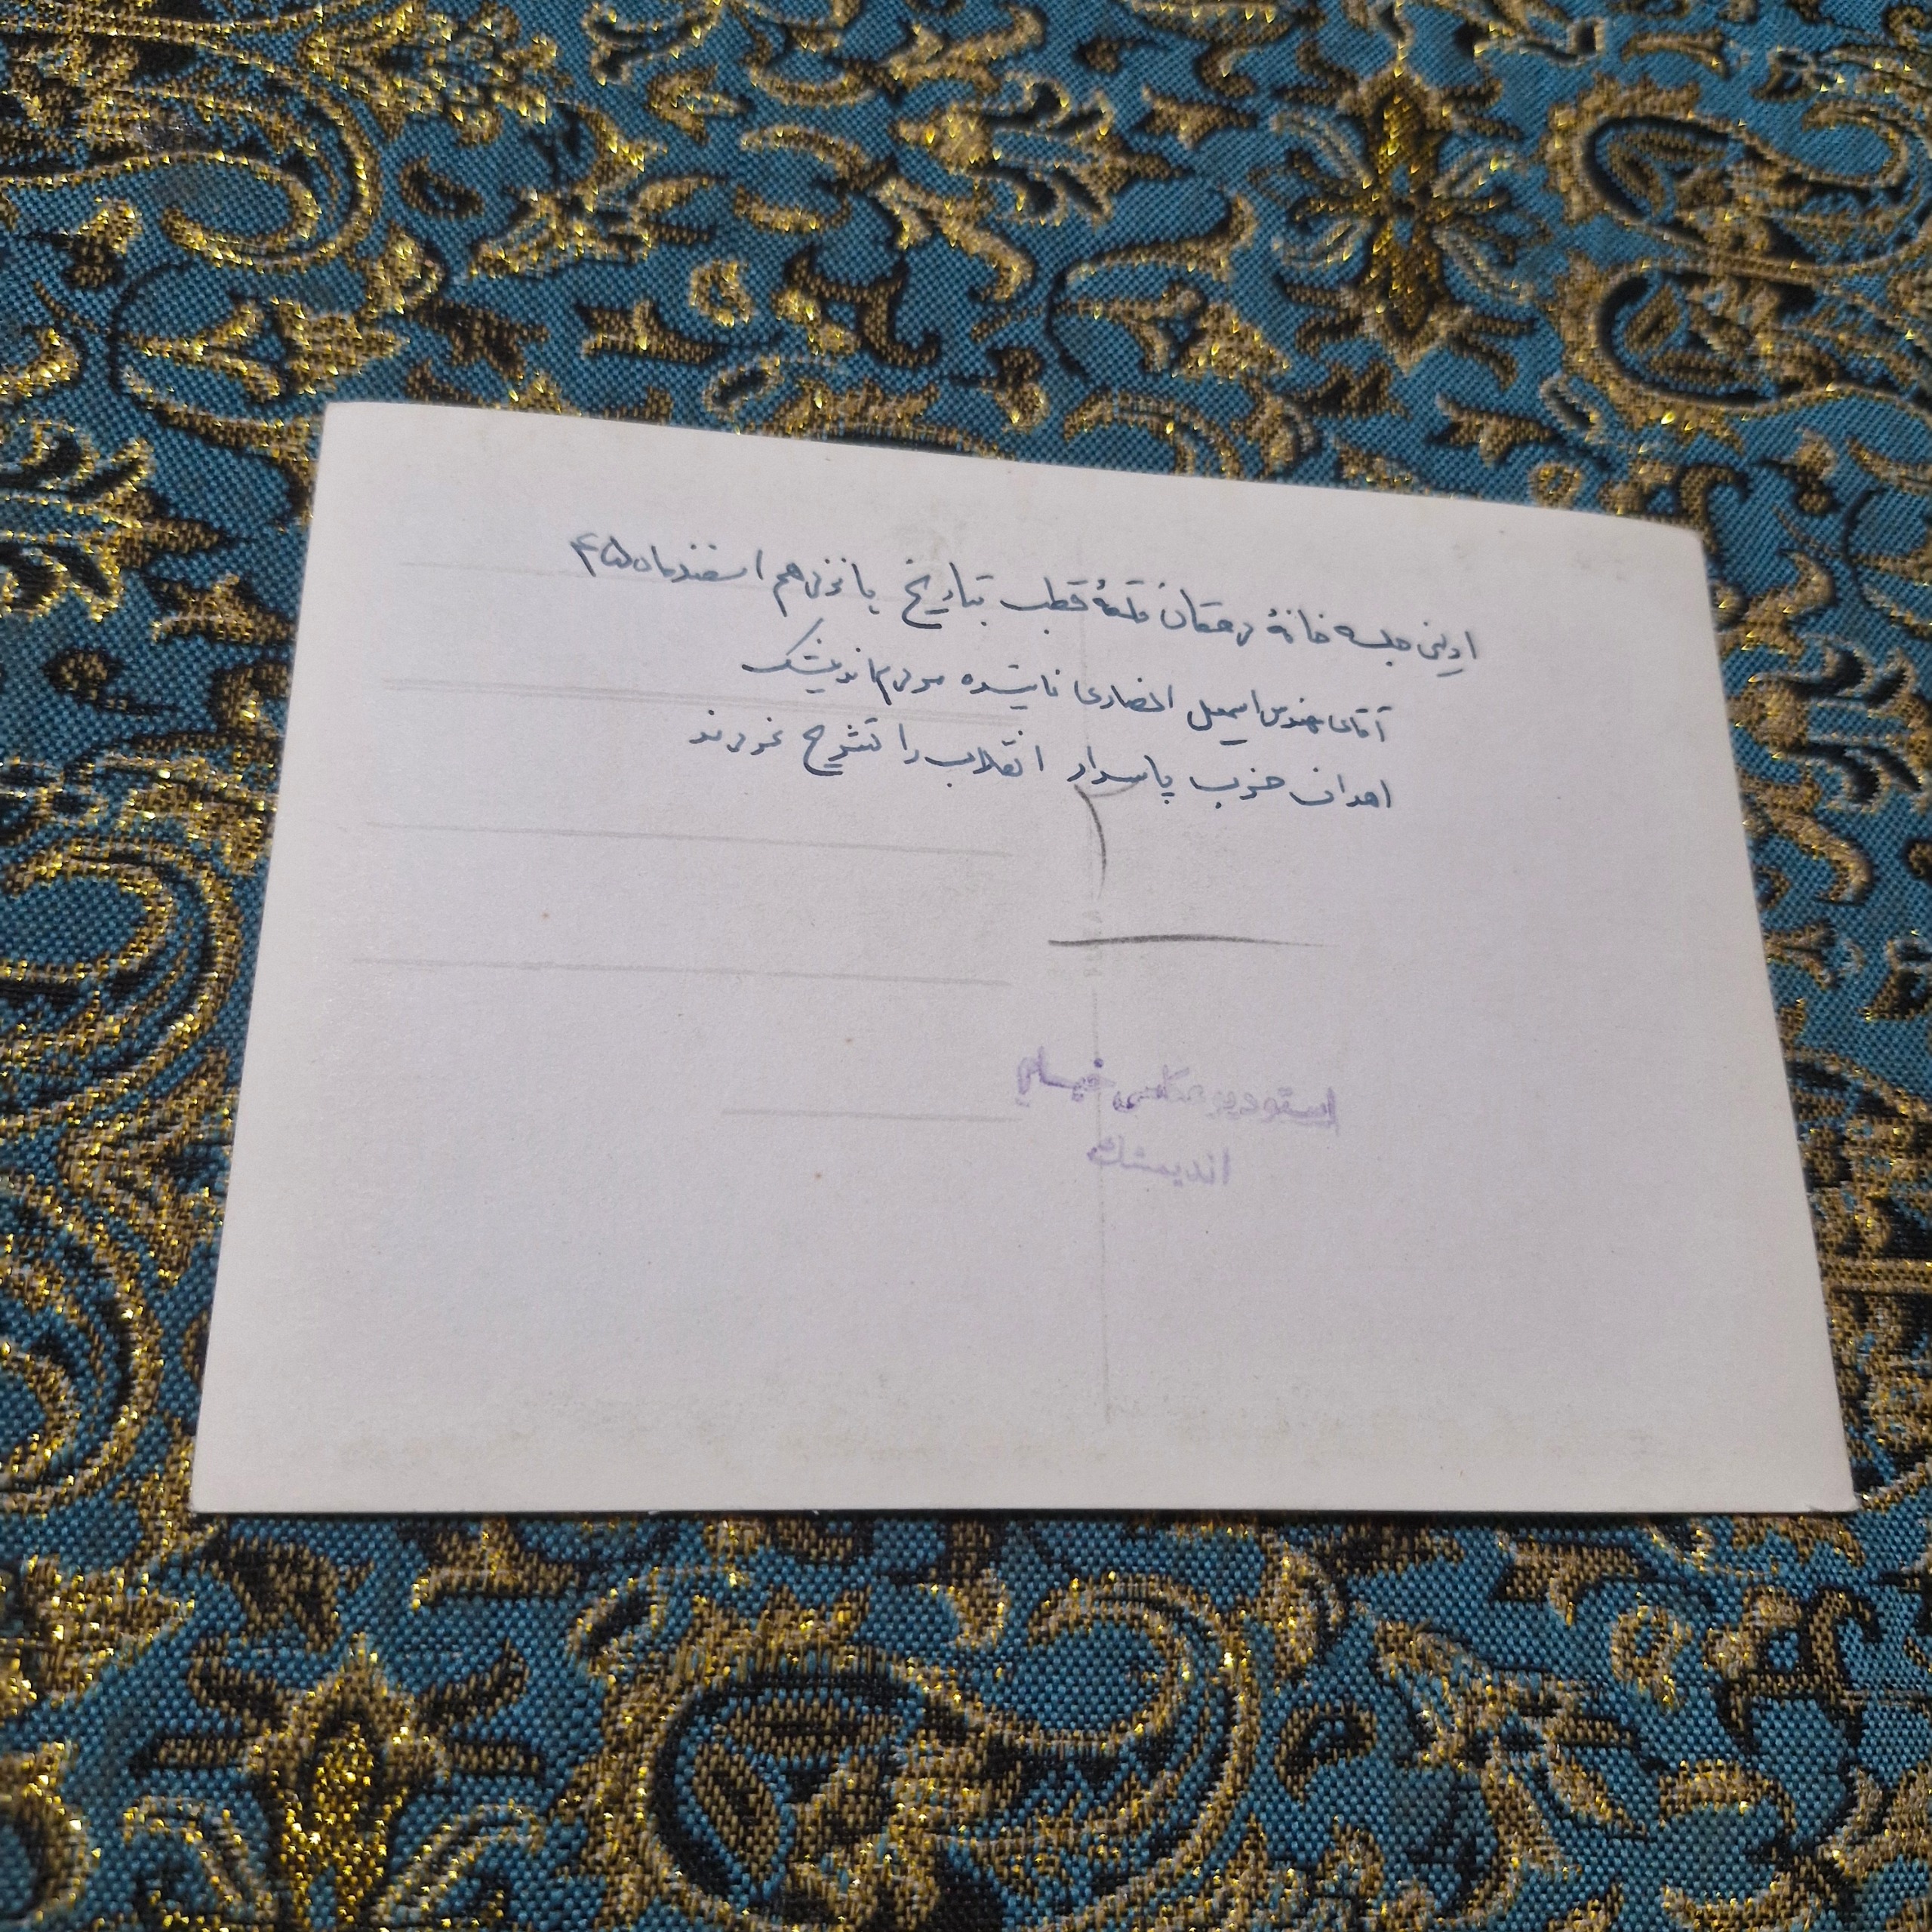 اولین جلسه خانهٔ دهقان قلعهٔ قطب بتاریخ پانزدهم اسفندماه ۴۵
آقای مهندس اسمعیل انصاری نماینده مردم اندیمشک
اهداف حزب پاسدار انقلاب را تشریح نمودند
استودیو عکاسی خیام
اندیمشک